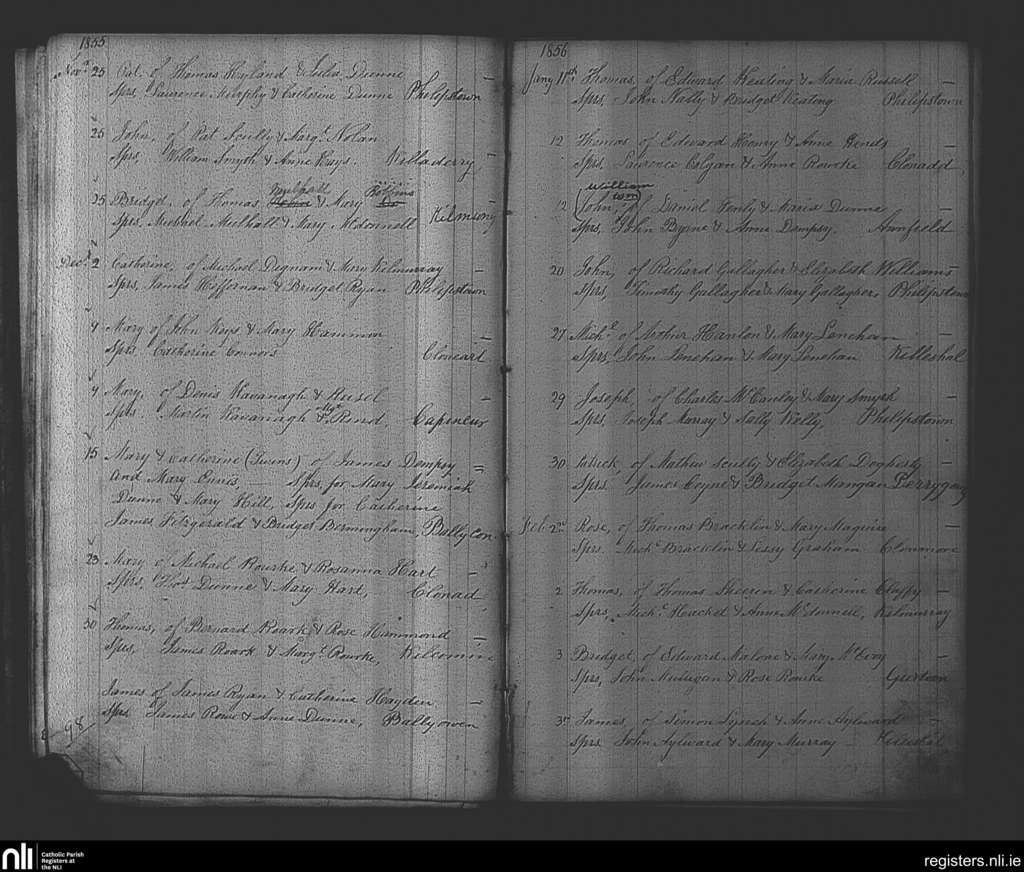 1855
Novr 25 Pat. of Thomas Hyland & Julia Dunne
Sprs. Lawrence Murphy & Catherine Dunne Philipstown
25 John, of Pat Scully & Margt. Nolan
Sprs, William Smyth & Anne Keys. Killaderry
Mulhall Robbins
25 Bridget, of Thomas & Mary
Sprs, Michael Mulhall & Mary McDonnell Kilmsony
Decr. 2 Catherine, of Michael Dignam & Mary Kilmurray
Sprs, James Heffernan & Bridget Ryan Philipstown
9 Mary of John Keys & Mary Hammon
Sprs. Catherine Connors Cloneart
9 Mary, of Denis Kavanagh &
Sprs. Martin Kavanagh & Capincur
15 Mary & Catherine (Twins) of James Dempsy
And Mary Ennis, Sprs, for Mary Jeremiah
Dunne & Mary Hill, Sprs for Catherine
James Fitzgerald & Bridget Bermingham, Ballycon
23 Mary of Michael Rourke & Rosanna Hart
Sprs, Thos Dunne & Mary Hart, Clonad
30 Thomas, of Bernard Roark & Rose Hammond
Sprs, James Roark & Margt. Rourke,
James of James Ryan & Catherine Hayden
Sprs James Rowe & Anne Dunne, Ballyowen
98
1856
Jany 11th Thomas, of Edward Keating & Maria Russell
Sprs. John Nally & Bridget Keating Philipstown
12 Thomas of Edward Henry & Anne Hinds
Sprs. Lawrence Colgan & Anne Rourke Clonadd
William
Wm
12 (John, of Daniel & Maria Dunne
Sprs, John Byrne & Anne Dempsy. Annfield
20 John, of Richard Gallagher & Elizabeth Williams
Sprs, Timothy Gallagher & Mary Gallagher, Philipstown
27 Michl. of Arthur Hanlon & Mary Lenehan
Sprs, John Lenehan & Mary Lenehan Killeshal
29 Joseph, of Charles McCauley & Mary Smyth
Sprs, Joseph Murray & Sally Kelly, Philipstown
30 Patrick, of Mathew Scully & Elizabeth Dogherty
Sprs. James Coyne & Bridget Mangan
Feb. 2nd Rose, of Thomas Bracklin & Mary Maguire
Sprs. Michl. Bracklin & Jessy Graham Clonmore
2 Thomas, of Thomas Sheeron & Catherine Claffy
Sprs, Michl. Hackett & Anne Kilmurray
3 Bridget, of Edward Malone & Mary McEvoy
Sprs, John Mulligan & Rose Rourke Gurteen
3rd James, of Simon Lynch & Anne Aylward
Sprs John Aylward & Mary Murray Killeshal
nli Catholic Parish
Registers at
the NLI
registers.nli.ie